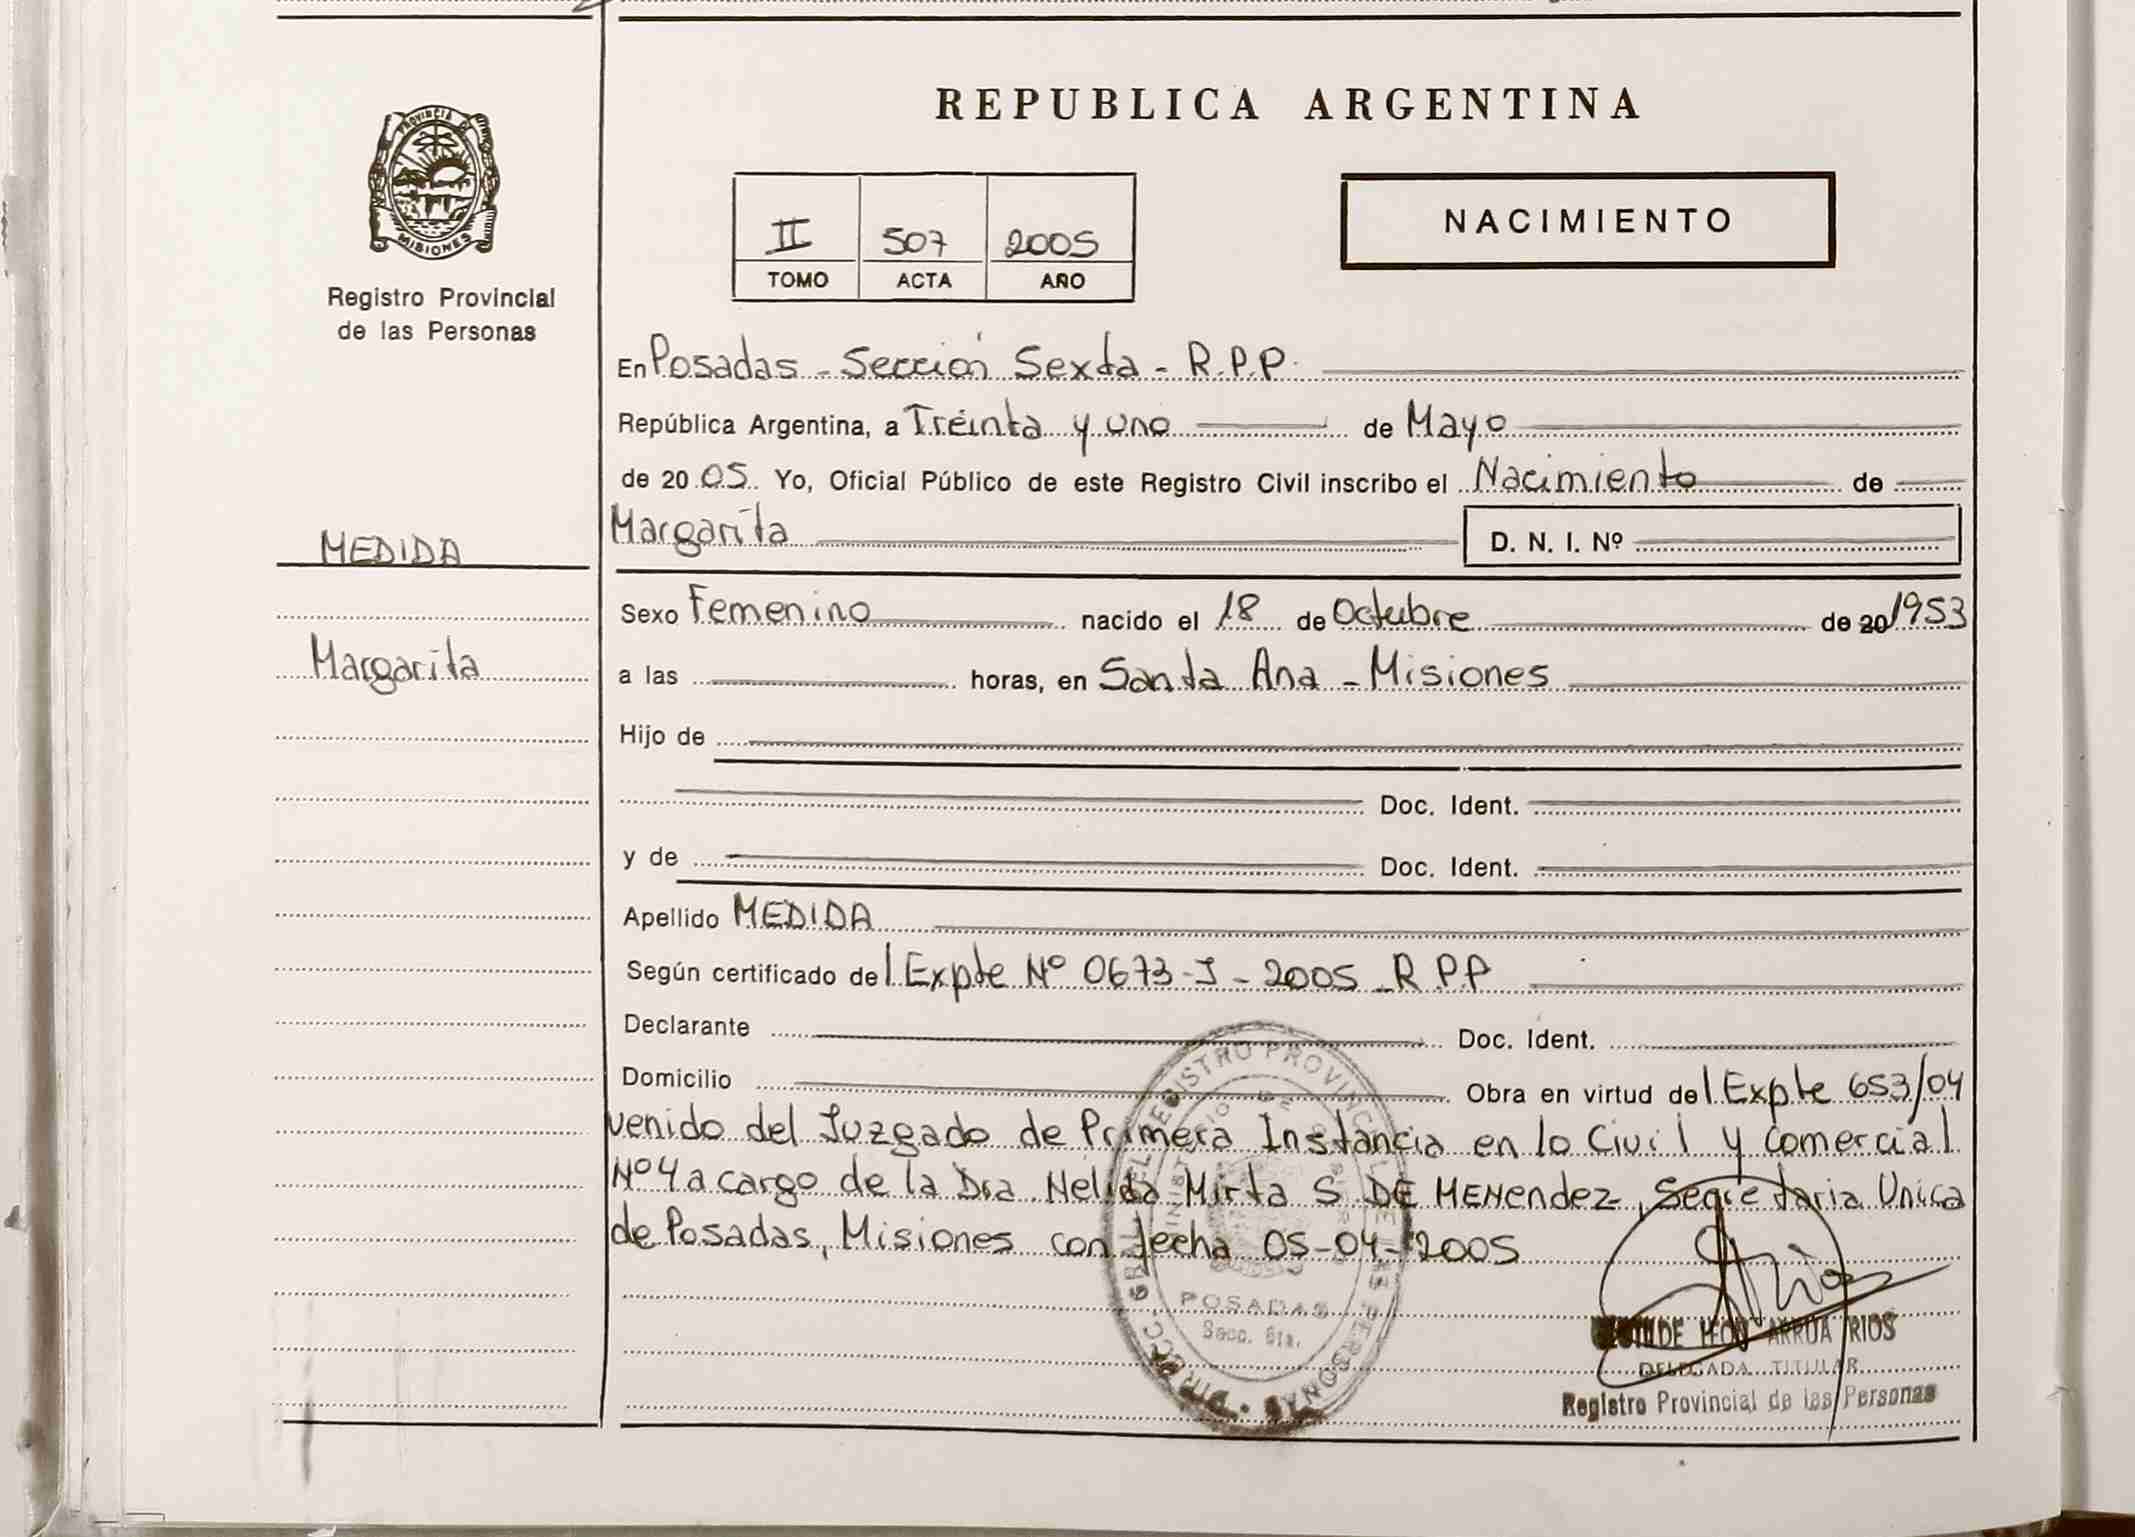 REPUBLICA ARGENTINA
PROVINCIA DE
MISIONES
Registro Provincial
de las Personas
II 507 2005
TOMO ACTA AÑO
NACIMIENTO
En Posadas - Sección Sexta - R.P.P.
República Argentina, a Treinta y uno de Mayo
de 2005. Yo, Oficial Público de este Registro Civil inscribo el Nacimiento de
Margarita D. N. I. Nº
MEDIDA
Margarita
Sexo Femenino nacido el 18 de Octubre de 20 1953
a las horas, en Santa Ana - Misiones
Hijo de
Doc. Ident.
y de Doc. Ident.
Apellido MEDIDA
Según certificado del Expte Nº 0673-J-2005 - R P.P
Declarante Doc. Ident.
Domicilio Obra en virtud del Expte 653/04
venido del Juzgado de Primera Instancia en lo Civil y Comercial
Nº 4 a cargo de la Dra Nelida Mirta S DE MENendez, Secretaria Unica
de Posadas, Misiones con fecha 05-04-2005
REGISTRO PROVINCIAL DE LAS PERSONAS
POSADAS
Secc. 6ta.
LEON ARRUA RIOS
DELEGADA TITULAR
Registro Provincial de las Personas